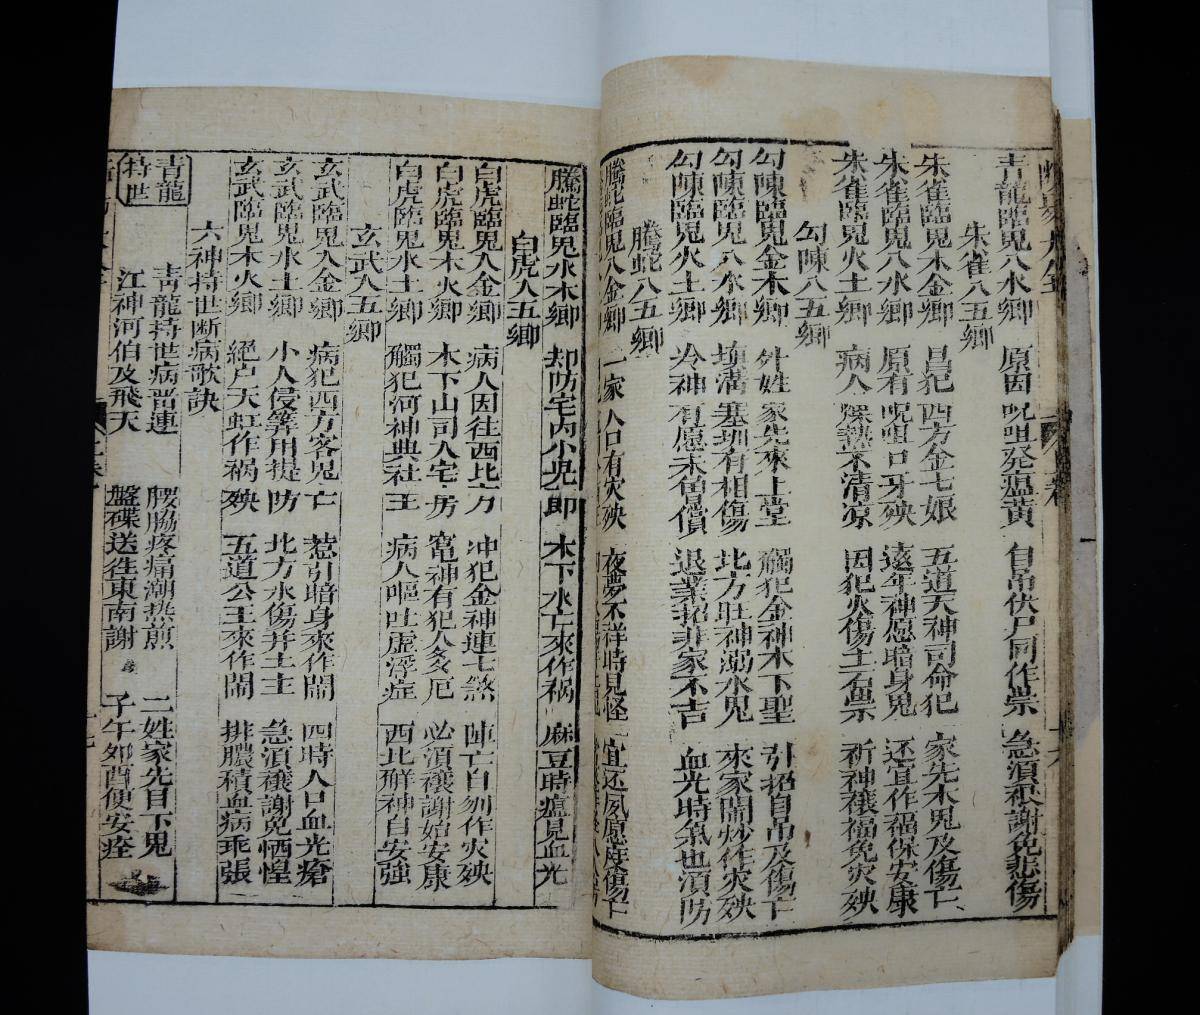 青龍臨鬼八水鄉 原因呪咀発瘟黄 自吊伏尸同作祟 急須祭謝免悲傷
朱雀八五鄉
朱雀臨鬼木金鄉 昌犯四方金七娘 五道天神司命犯 家先木鬼及傷亡
朱雀臨鬼八水鄉 原有呪咀口牙殃 遠年神愿暗身鬼 还宜作福保安康
朱雀臨鬼火土鄉 病人燥熱不清凉 因犯火傷土石祟 祈神禳福免灾殃
勾陳八五鄉
勾陳臨鬼金木鄉 外姓家先來上堂 觸犯金神木下聖 引招自吊及傷亡
勾陳臨鬼八水鄉 填溝塞圳有相傷 北方肚神溺水鬼 來家鬧炒作灾殃
勾陳臨鬼火土鄉 冷神有愿未曾償 退業招非家不吉 血光時氣也須防
騰蛇八五鄉
騰蛇臨鬼八金鄉 一家人口有灾殃 夜夢不祥時見怪 宜还夙愿度傷亡
騰蛇臨鬼水木鄉 却防宅內小兒郎 木下水亡來作祸 麻豆時瘟見血光
白虎八五鄉
白虎臨鬼八金鄉 病人因往西北方 冲犯金神連七煞 陣亡自刎作灾殃
白虎臨鬼木火鄉 木下山司入宅房 竃神有犯人多厄 必須禳謝始安康
白虎臨鬼水土鄉 觸犯河神典社王 病人嘔吐虚浮症 西北觧神自安強
玄武八五鄉
玄武臨鬼八金鄉 病犯西方客鬼亡 惹引暗身來作鬧 四時人口血光瘡
玄武臨鬼水土鄉 小人侵筭用提防 北方水傷并土主 急須禳謝免恓惶
玄武臨鬼木火鄉 絕户天虹作祸殃 五道公王來作鬧 排膿積血病乖張
六神持世断病歌訣
青龍持世
青龍持世病晋連 腰脇疼痛潮热煎 二姓家先目下鬼
江神河伯及飛天 盤碟送往東南謝 子午卯酉便安痊